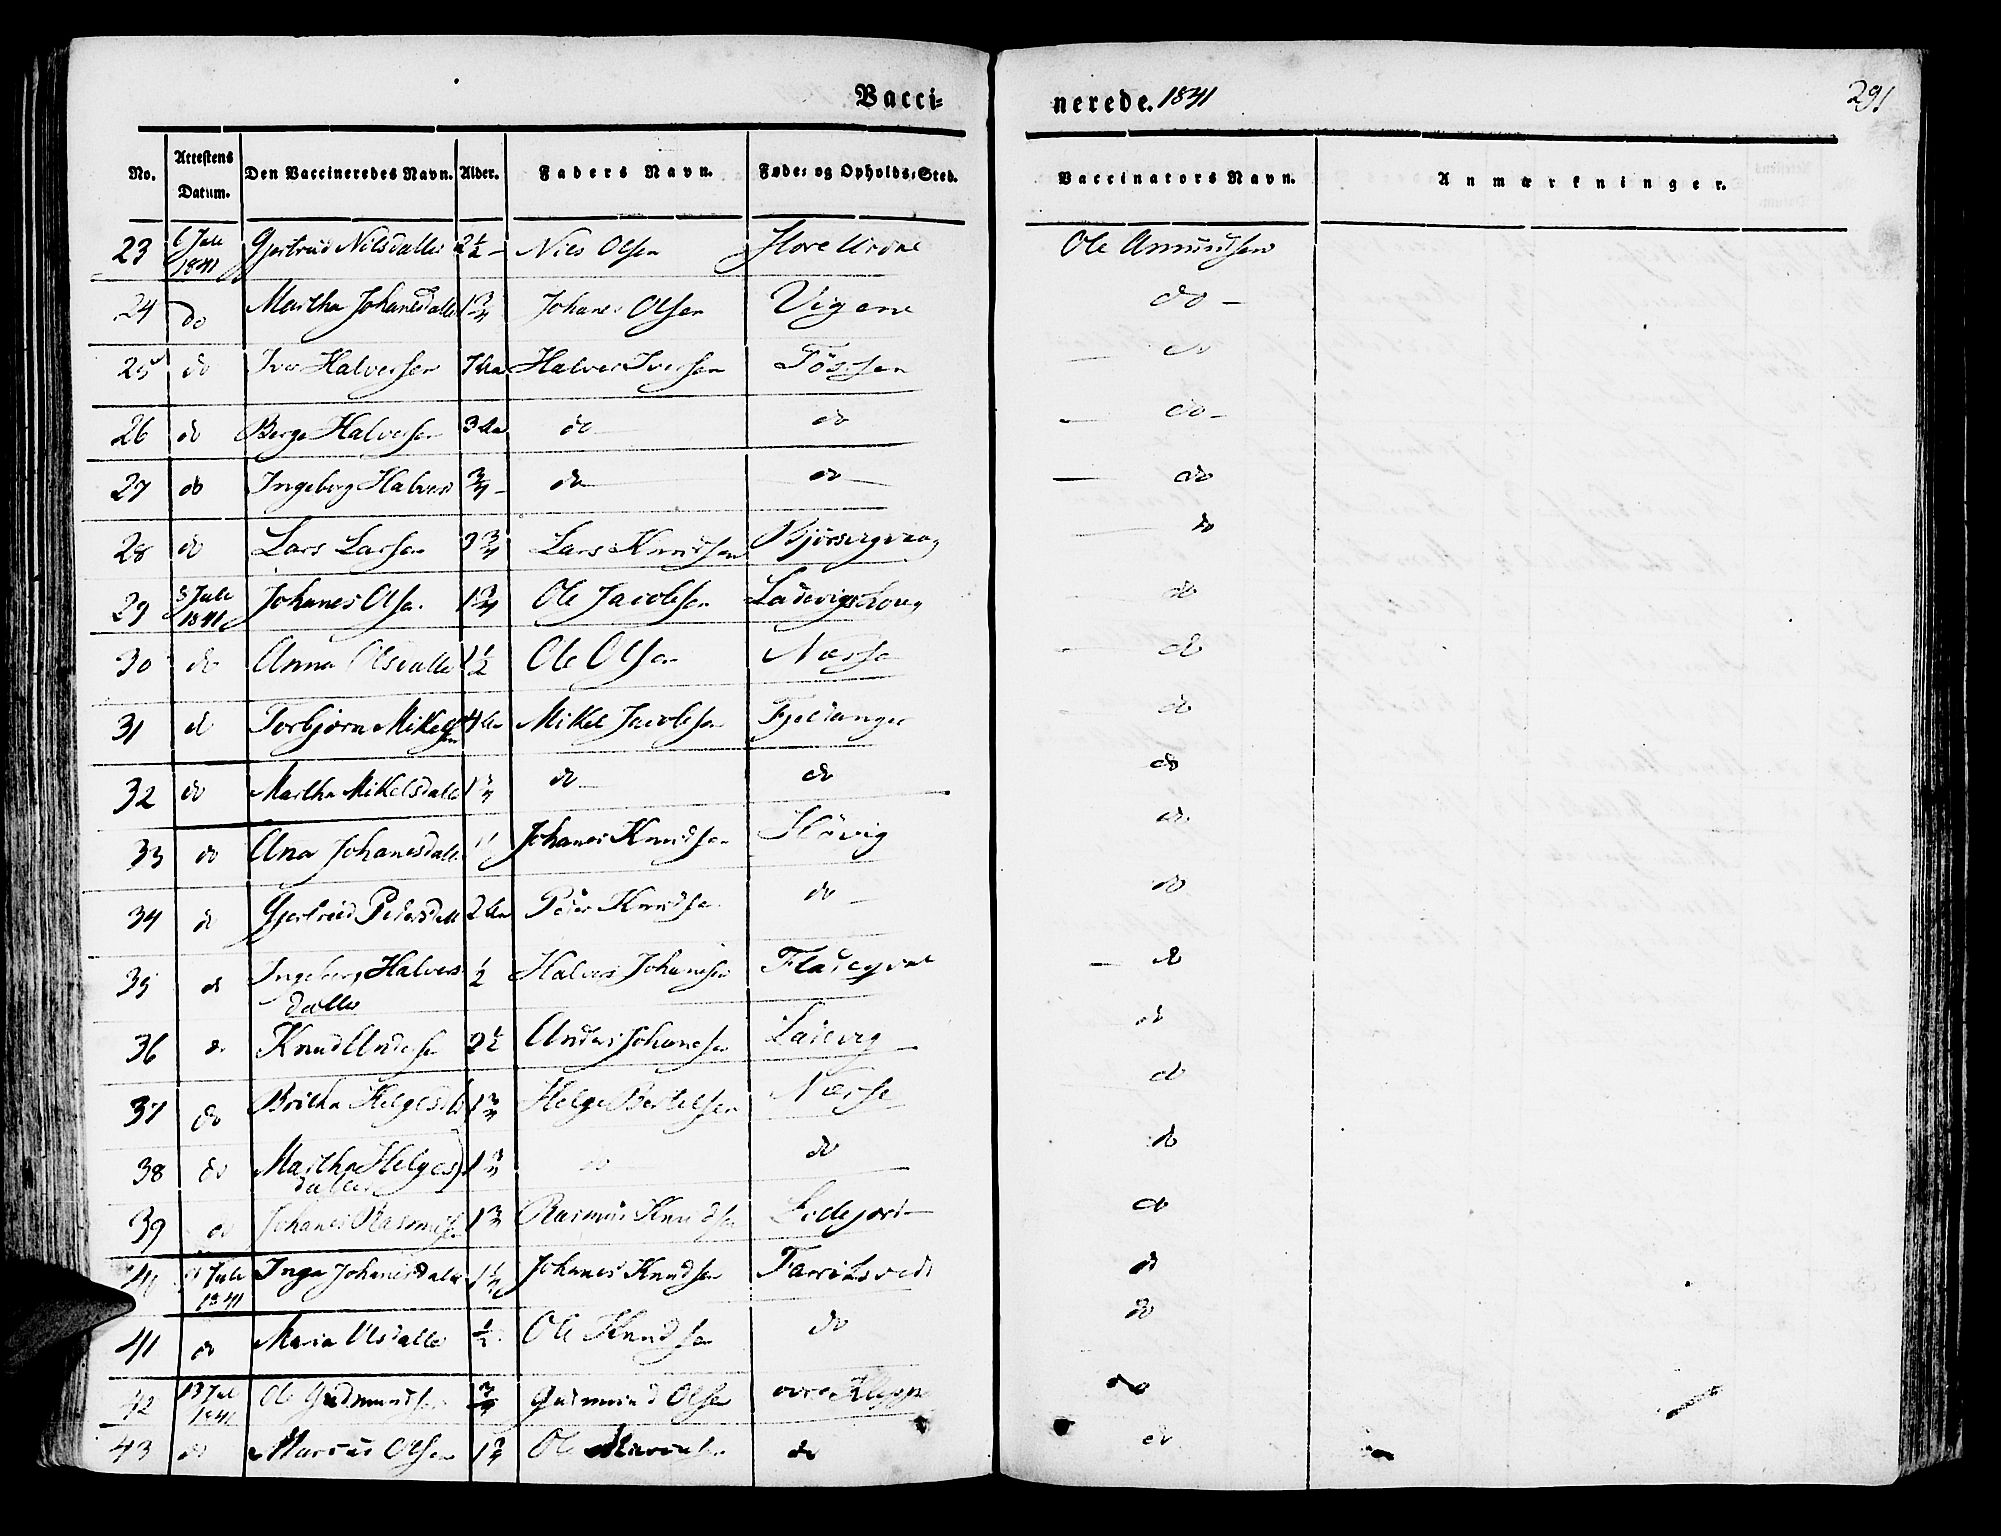 Vacci- nerede. 1841 291
No. Attestens Datum. Den Vaccineredes Navn. Alder. Faders Navn. Føde- og Opholds-Sted. Vaccinators Navn. Anmærkninger.
23 6 Juli 1841 Gjertrud Nilsdatter 2½ Nils Olsen Ole Amundsen
24 do Martha Johanesdatter 1¾ Johanes Olsen Vigene do
25 do Iver Halversen 7 Halver Iversen Tøssen do
26 do Berge Halversen 3 do do do
27 do Ingeborg Halvers ¾ do do do
28 do Lars Larsen 2¾ Lars Knudsen do
29 8 Juli 1841 Johanes Olsen 1¾ Ole Jacobsen do
30 do Anna Olsdatter 1½ Ole Olsen Næsse do
31 do Torbjørn Mikelsen 4 Mikel Jacobsen Fjeldanger do
32 do Martha Mikelsdatter 1¾ do do do
33 do Ana Johanesdatter Johanes Knudsen Høvig do
34 do Gjertrud Pedersdatter 2 Peder Knudsen do do
35 do Ingeborg Halvers
datter ½ Halver Johanesen do
36 do Knud Andersen 2½ Anders Johanesen Ladevig do
37 do Britha Helgesd 1¾ Helge Bertelsen Næsse do
38 do Martha Helges
datter 1¾ do do do
39 do Johanes Rasmussen 1¾ Rasmus Knudsen do
40 Juli 1841 Inga Johanesdatter 1½ Johanes Knudsen do
41 do Maria Olsdatter ½ Ole Knudsen do do
42 13 Jul 1841 Ole Gudmundsen ¾ Gudmund Olsen øvre Klepp do
43 do Marcus Olsen 1¾ Ole do do